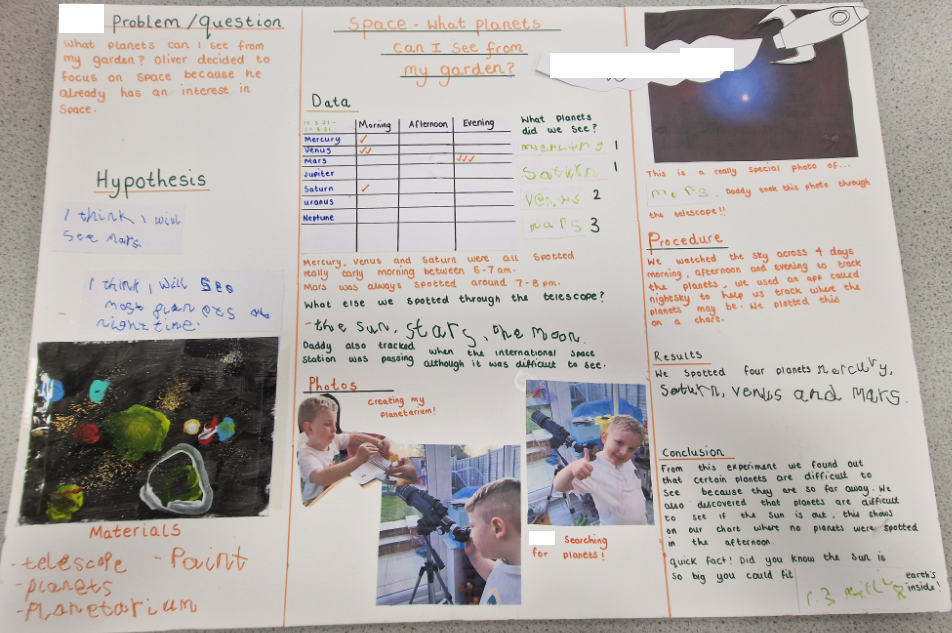 Problem/question
What planets can I see from
my garden? Oliver decided to
focus on space because he
already has an interest in
Space.
Hypothesis
I think I will
see mars
I think I will see
most planets at
night time.
Materials
- telescope - Paint
- planets
- planetarium
Space - What planets
can I see from
my garden?
Data
Morning Afternoon Evening
Mercury ✓
Venus ✓✓
Mars ✓✓✓
Jupiter
Saturn ✓
uranus
Neptune
What planets
did we see?
mercury 1
Saturn 1
Venus 2
mars 3
Mercury, Venus and Saturn were all spotted
really early morning between 5-7am.
Mars was always spotted around 7-8pm.
What else we spotted through the telescope?
- the sun, stars, the moon.
Daddy also tracked when the international space
station was passing although it was difficult to see.
Photos
creating my
planetarium!
Searching
for planets!
This is a really special photo of...
mars. Daddy took this photo through
the telescope!!
Procedure
We watched the sky across 4 days
morning, afternoon and evening to track
the planets, we used an app called
nightsky to help us track where the
planets may be. We plotted this
on a chart.
Results
We spotted four planets mercury,
Saturn, venus and mars.
Conclusion
From this experiment we found out
that certain planets are difficult to
see because they are so far away. We
also discovered that planets are difficult
to see if the sun is out, this shows
on our chart where no planets were spotted
in the afternoon.
quick fact! Did you know the sun is
so big you could fit 1.3 earth's
inside!